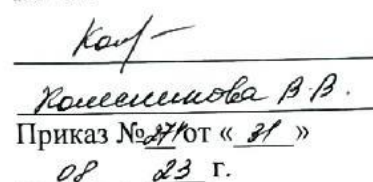 Колесникова В.В.
Приказ № 271 от « 31 »
08 23 г.